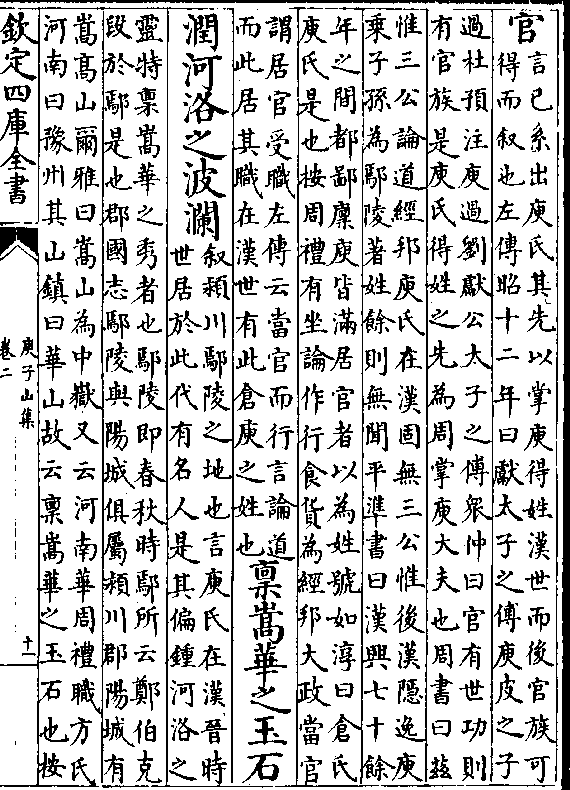 官言已系出庾氏其先以掌庾得姓漢世而後官族可
得而叙也左傳昭十二年曰獻太子之傅庾皮之子
過杜預注庾過劉獻公太子之傅衆仲曰官有世功則
有官族是庾氏得姓之先為周掌庾大夫也周書曰兹
惟三公論道經邦庾氏在漢固無三公惟後漢隱逸庾
乘子孫為鄢陵著姓餘則無聞平準書曰漢興七十餘
年之間都鄙廩庾皆滿居官者以為姓號如淳曰倉氏
庾氏是也按周禮有坐論作行食貨為經邦大政當官
謂居官受職左傳云當官而行言論道
而此居其職在漢世有此倉庾之姓也
稟嵩華之玉石
潤河洛之波瀾
叙潁川鄢陵之地也言庾氏在漢晉時
世居於此代有名人是其偏鍾河洛之
靈特稟嵩華之秀者也鄢陵即春秋時鄢所云鄭伯克
段於鄢是也郡國志鄢陵與陽城俱屬潁川郡陽城有
嵩高山爾雅曰嵩山為中嶽又云河南華周禮職方氏
河南曰豫州其山鎮曰華山故云稟嵩華之玉石也按
欽定四庫全書
庾子山集
卷二
十一